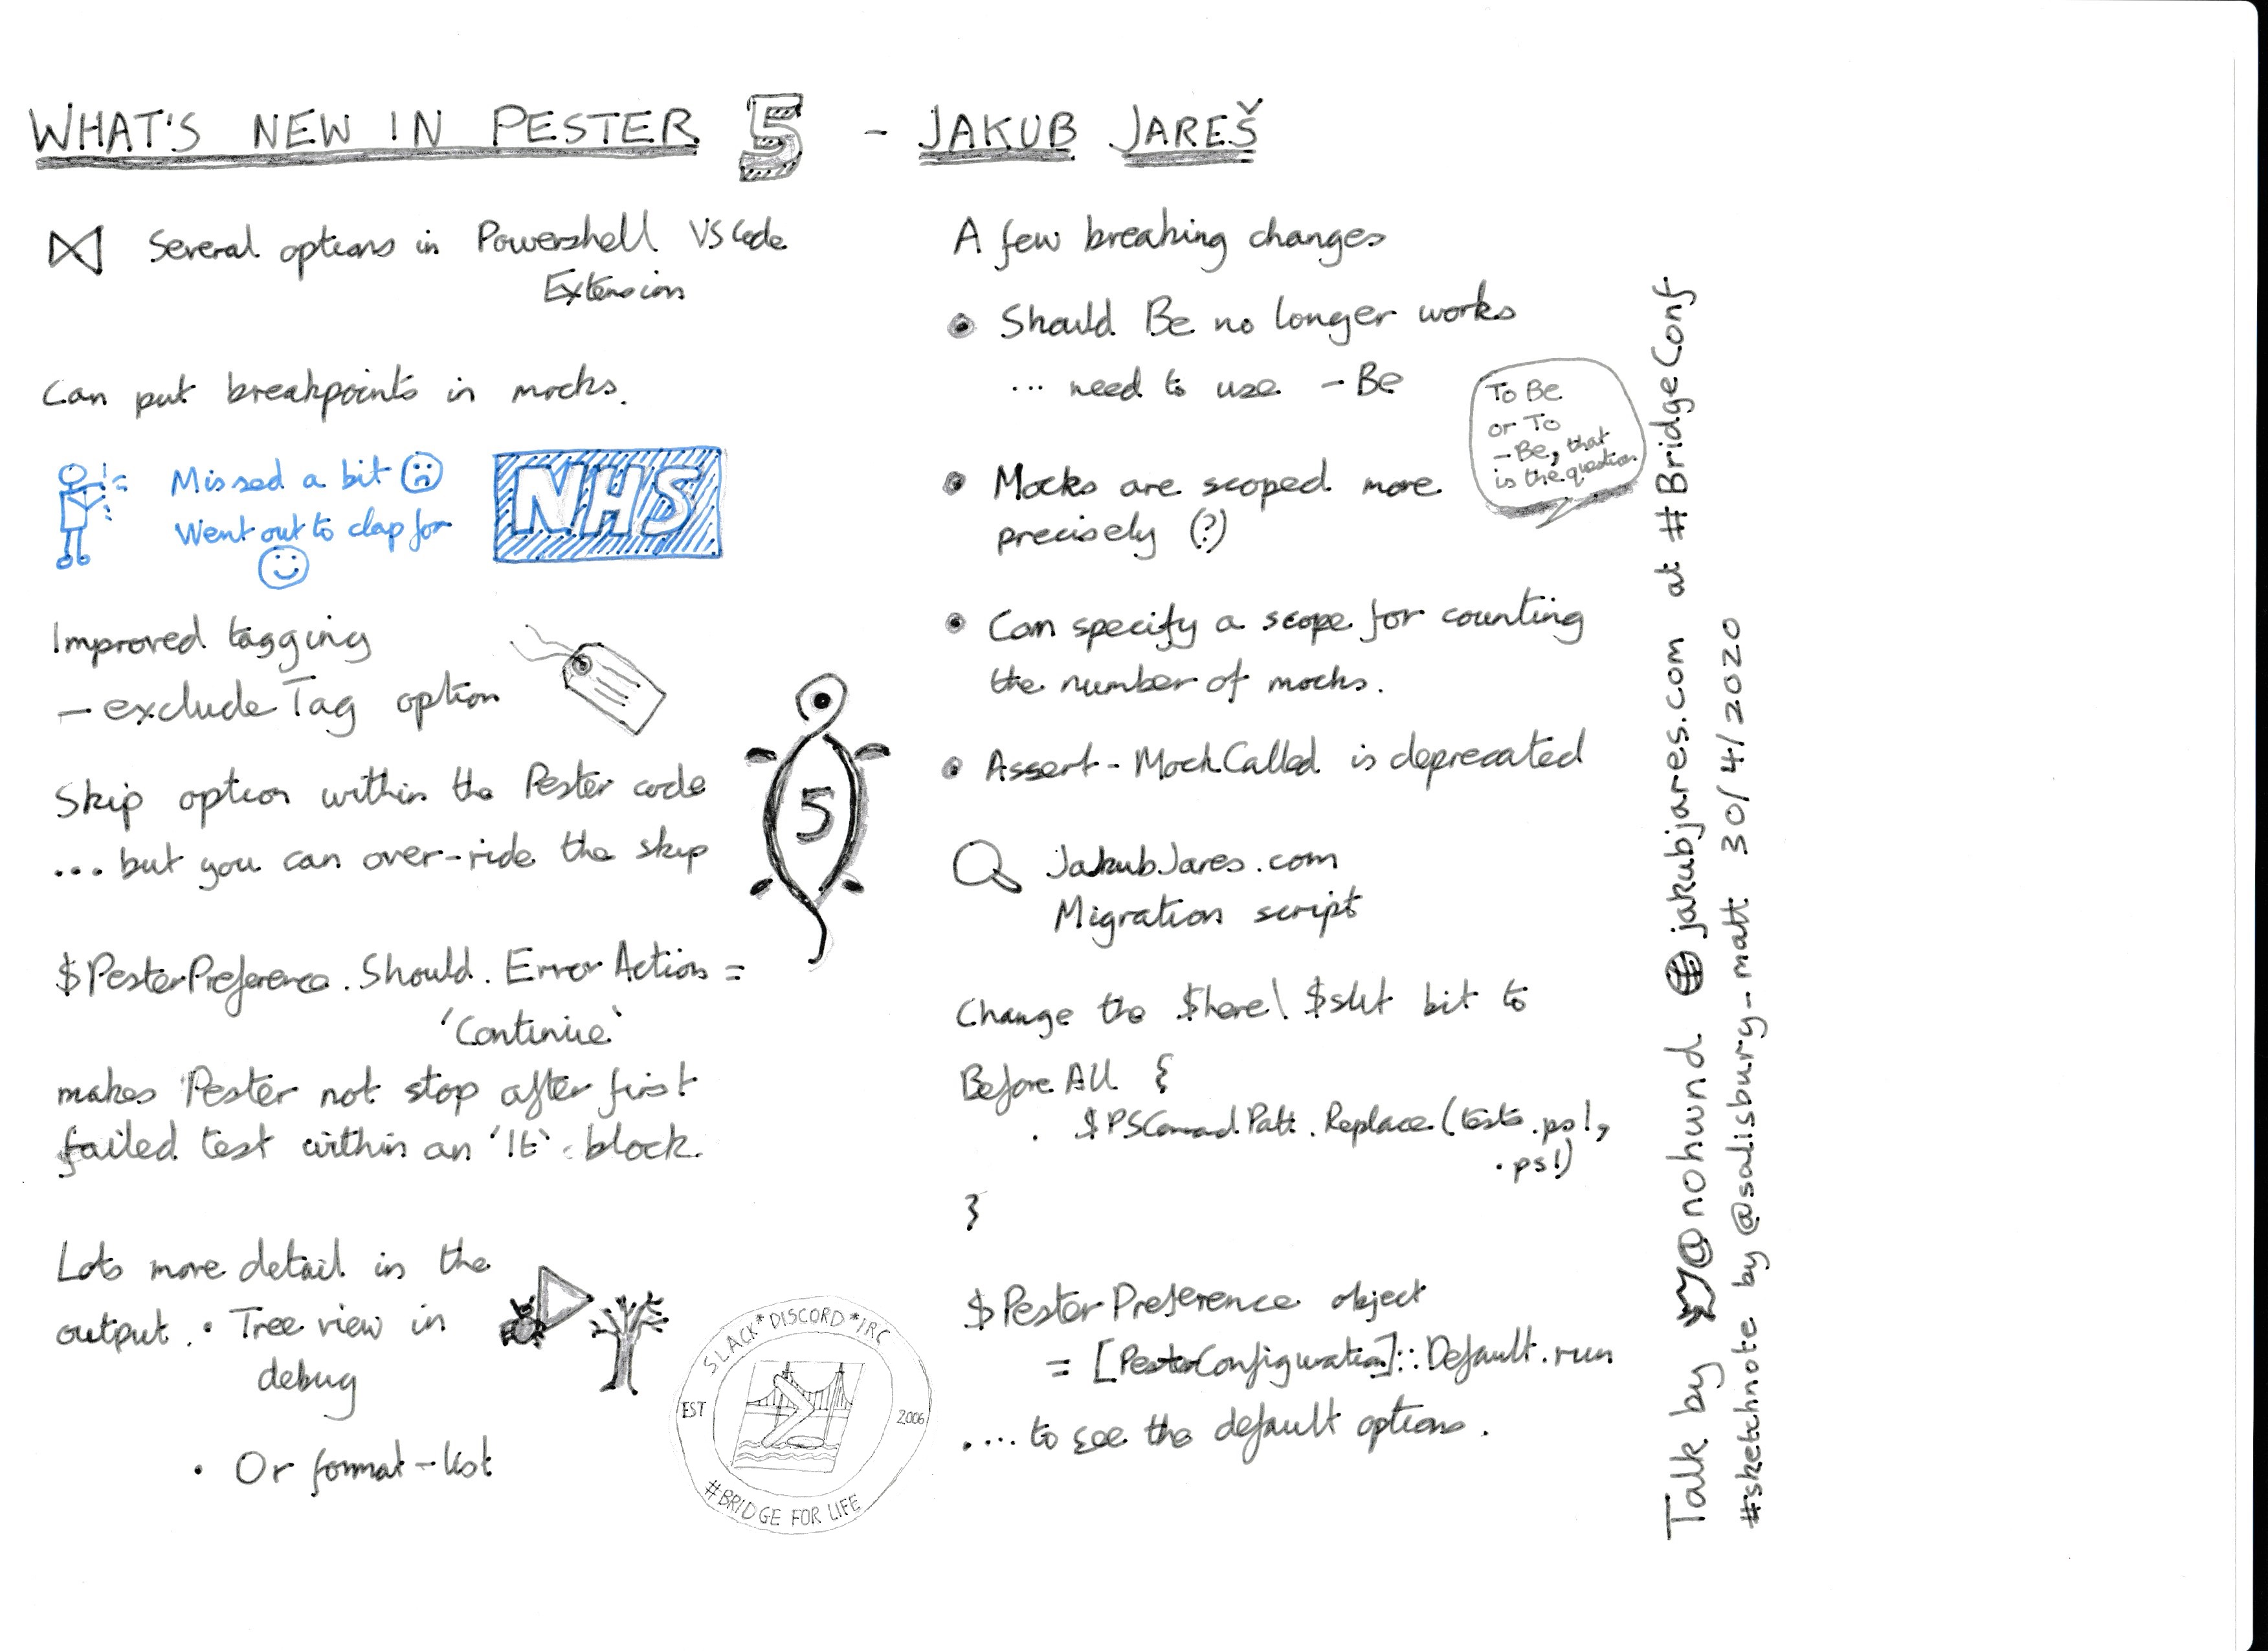 WHAT'S NEW IN PESTER 5 - JAKUB JAREŠ
Several options in Powershell VSCode
Extension
Can put breakpoints in mocks.
Missed a bit
Went out to clap for
NHS
Improved tagging
- excludeTag option
Skip option within the Pester code
... but you can over-ride the skip
5
$PesterPreference.Should.ErrorAction =
'Continue'
makes Pester not stop after first
failed test within an 'It' block.
Lots more detail in the
output. • Tree view in
debug
• Or format-list
SLACK*DISCORD*IRC
EST 2006
#BRIDGE FOR LIFE
A few breaking changes
• Should Be no longer works
... need to use -Be
To Be
or To
-Be, that
is the question
• Mocks are scoped more
precisely (?)
• Can specify a scope for counting
the number of mocks.
• Assert-MockCalled is deprecated
JakubJares.com
Migration script
Change the $here\ $sut bit to
BeforeAll {
. $PSComadPath.Replace(tests.ps1,
.ps1)
}
$PesterPreference object
= [PesterConfiguration]::Default.run
.... to see the default options.
Talk by @nohwnd jakubjares.com at #BridgeConf
#sketchnote by @salisbury-matt 30/4/2020